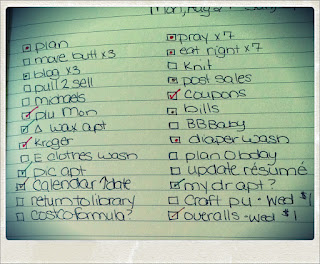 plan
move butt x3
blog x3
pull 2 sell
michaels
piu mon
Δ wax apt
Kroger
E clothes wash
pic apt
Calendar ?date
return to library
costco formula?
pray x7
eat right x7
Knit
post sales
Coupons
bills
BBBaby
diaper wash
plan O bday
update résumé
my dr apt?
Craft pu - Wed $1
overalls - wed $1